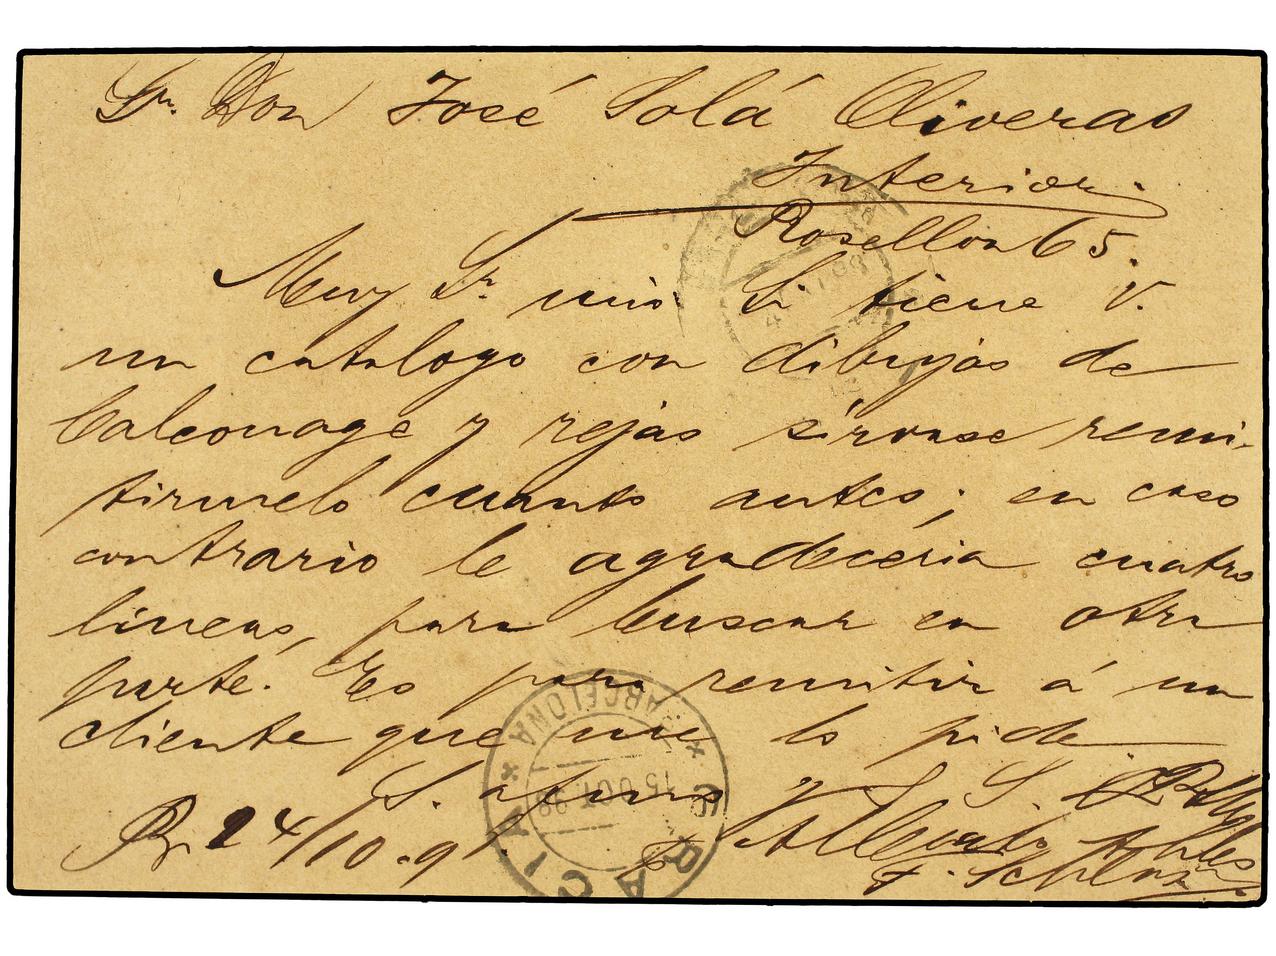 Sr. Don José Solá Oliveras
Interior.
Rosellon 65.
Muy Sr. mio Si tiene V.
un catalogo con dibujos de
balconage y rejas sirvase remi-
tirmelo cuanto antes; en caso
contrario le agradeceria cuatro
lineas, para buscar en otra
parte. Es para remitir á un
cliente que me lo pide
S. S. S.
24/10-9
GRACIA
* BARCELONA *
15 OCT 98